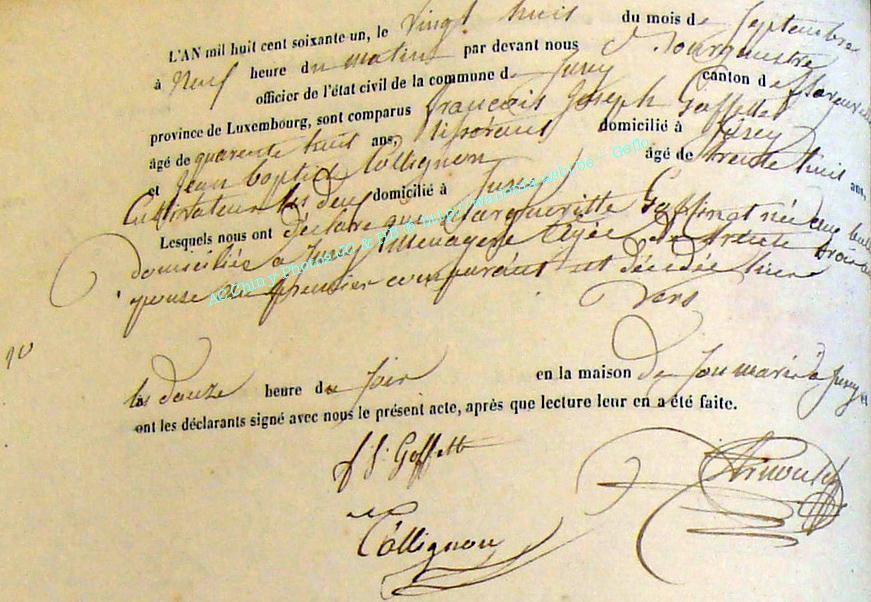 L'AN mil huit cent soixante-un, le vingt huit du mois de Septembre
à Neuf heure du matin par devant nous Bourgmestre
officier de l'état civil de la commune de Jusey canton de
province de Luxembourg, sont comparus françois Joseph Goffette
âgé de quarente huit ans, domicilié à Jusey
et Jean baptiste Collignon âgé de trente huit ans,
Cultivateur les deux domicilié à Jusey
Lesquels nous ont déclaré que Margueritte née aux
domiciliée à Jusey Menagere Agée de trente trois
epouse du premier comparant est décédée hier
Vers
10
les douze heure du soir en la maison de son marie à Jusey et
ont les déclarants signé avec nous le présent acte, après que lecture leur en a été faite.
f J Goffette
Collignon
Arnould